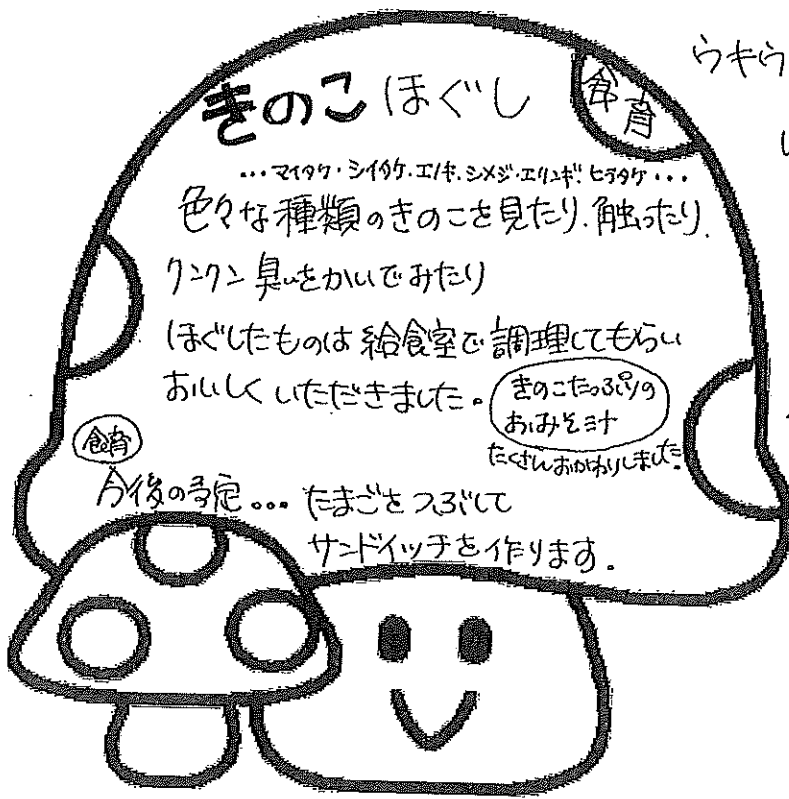 ウキウ
きのこほぐし
食育
…マイタケ・シイタケ・エノキ・シメジ・エリンギ・ヒラタケ…
色々な種類のきのこを見たり、触ったり、
クンクン臭いをかいでみたり
ほぐしたものは給食室で調理してもらい
おいしくいただきました。
きのこたっぷりの
おみそ汁
たくさんおかわりしました。
食育
今後の予定…たまごをつぶして
サンドイッチを作ります。